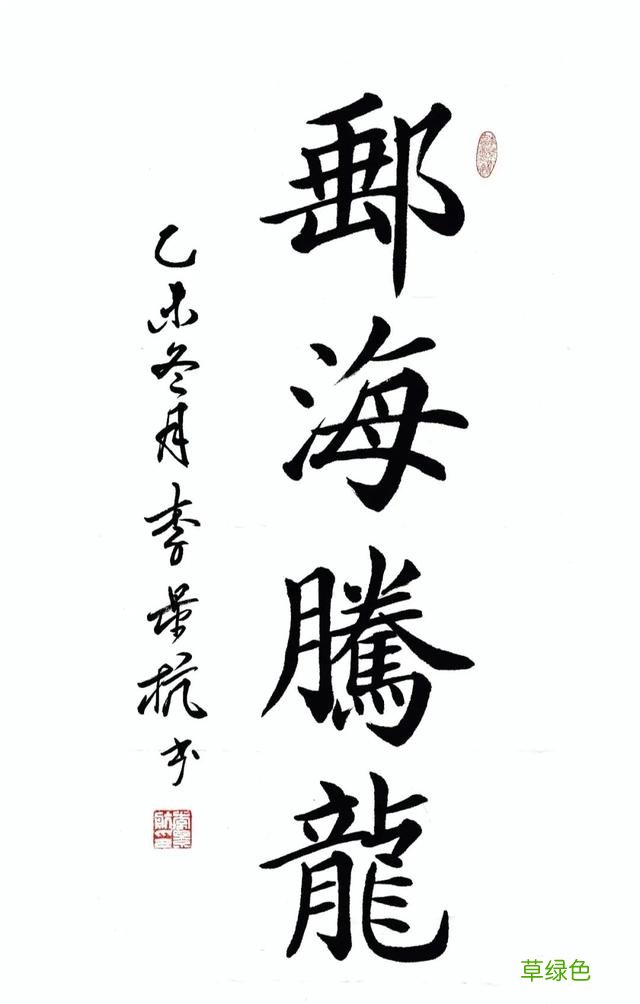 郵海騰龍
乙未冬月李景杭书
草绿色